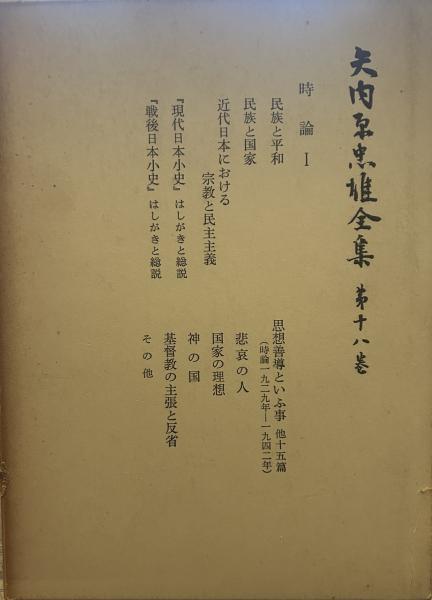 矢内原忠雄全集 第十八巻
時論Ⅰ
民族と平和
民族と国家
近代日本における
宗教と民主主義
『現代日本小史』はしがきと総説
『戦後日本小史』はしがきと総説
思想善導といふ事 他十五篇
(時論一九二九年―一九四二年)
悲哀の人
国家の理想
神の国
基督教の主張と反省
その他